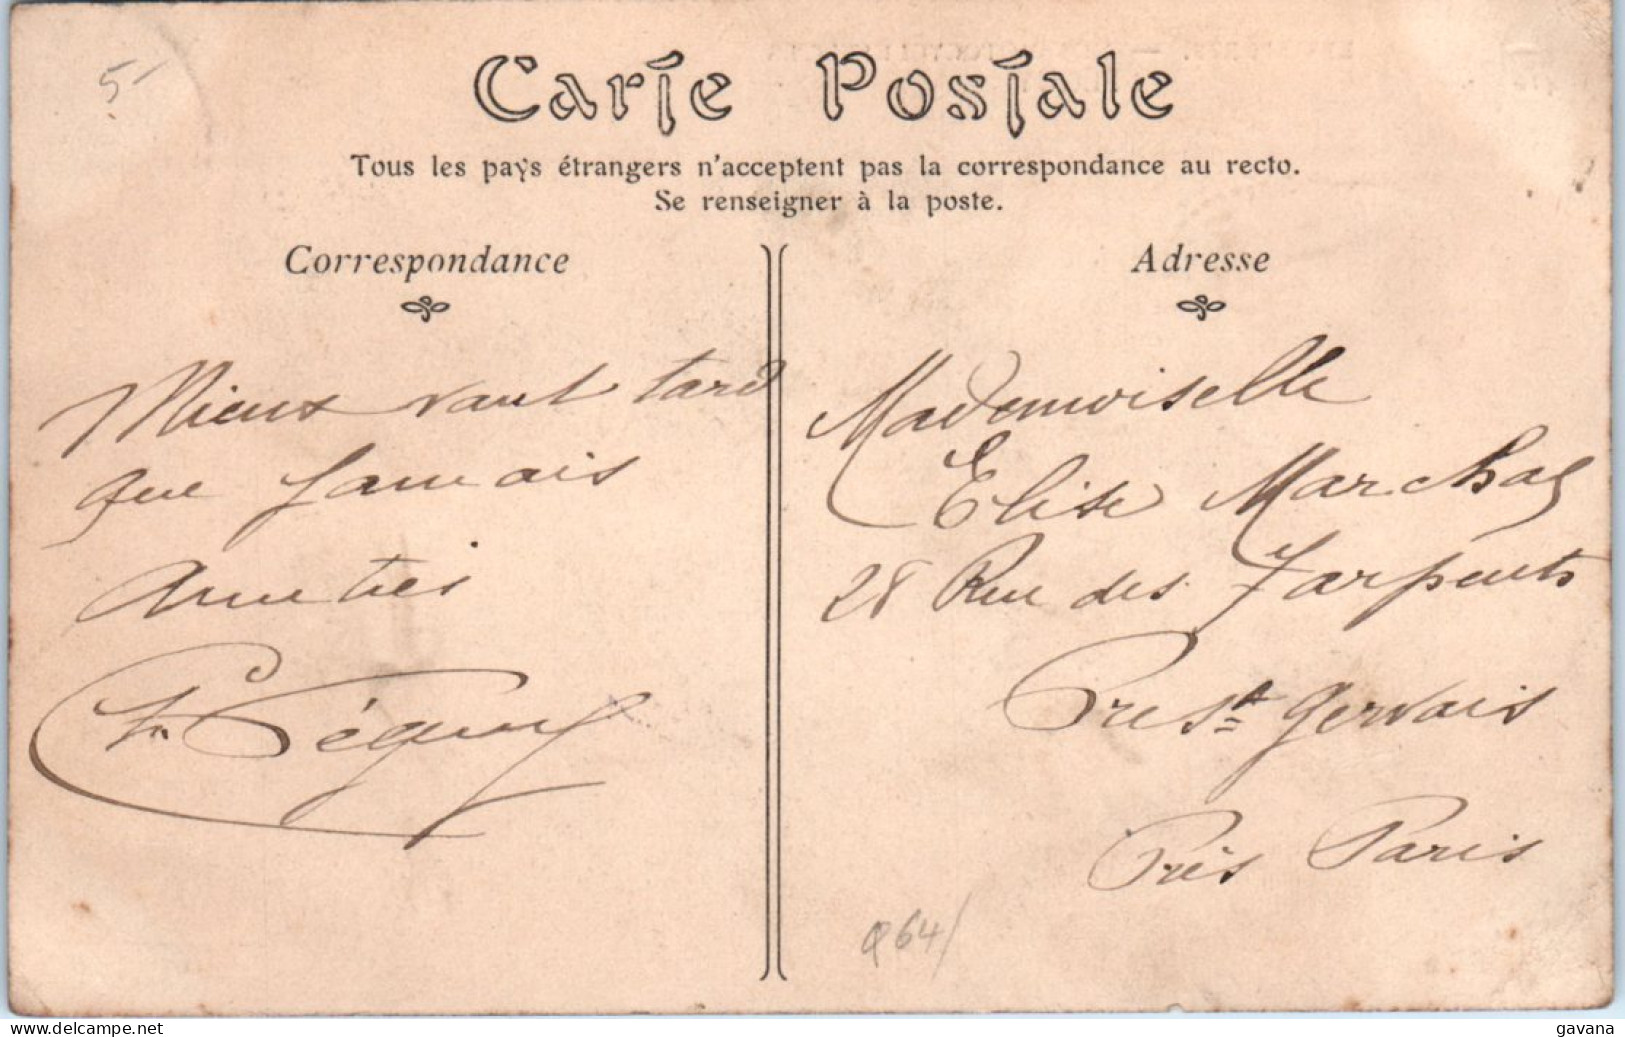 5-
Carte Postale
Tous les pays étrangers n'acceptent pas la correspondance au recto.
Se renseigner à la poste.
Correspondance
Mieux vaut tard
que jamais
Amitiés
Adresse
Mademoiselle
Elise Marchal
28 Rue des 7 arpents
Pre St Gervais
Près Paris
64/
delcampe.net
gavana